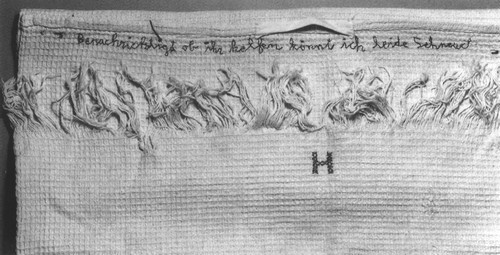 Benachrichtigt ob ihr helfen könnt ich leide
H